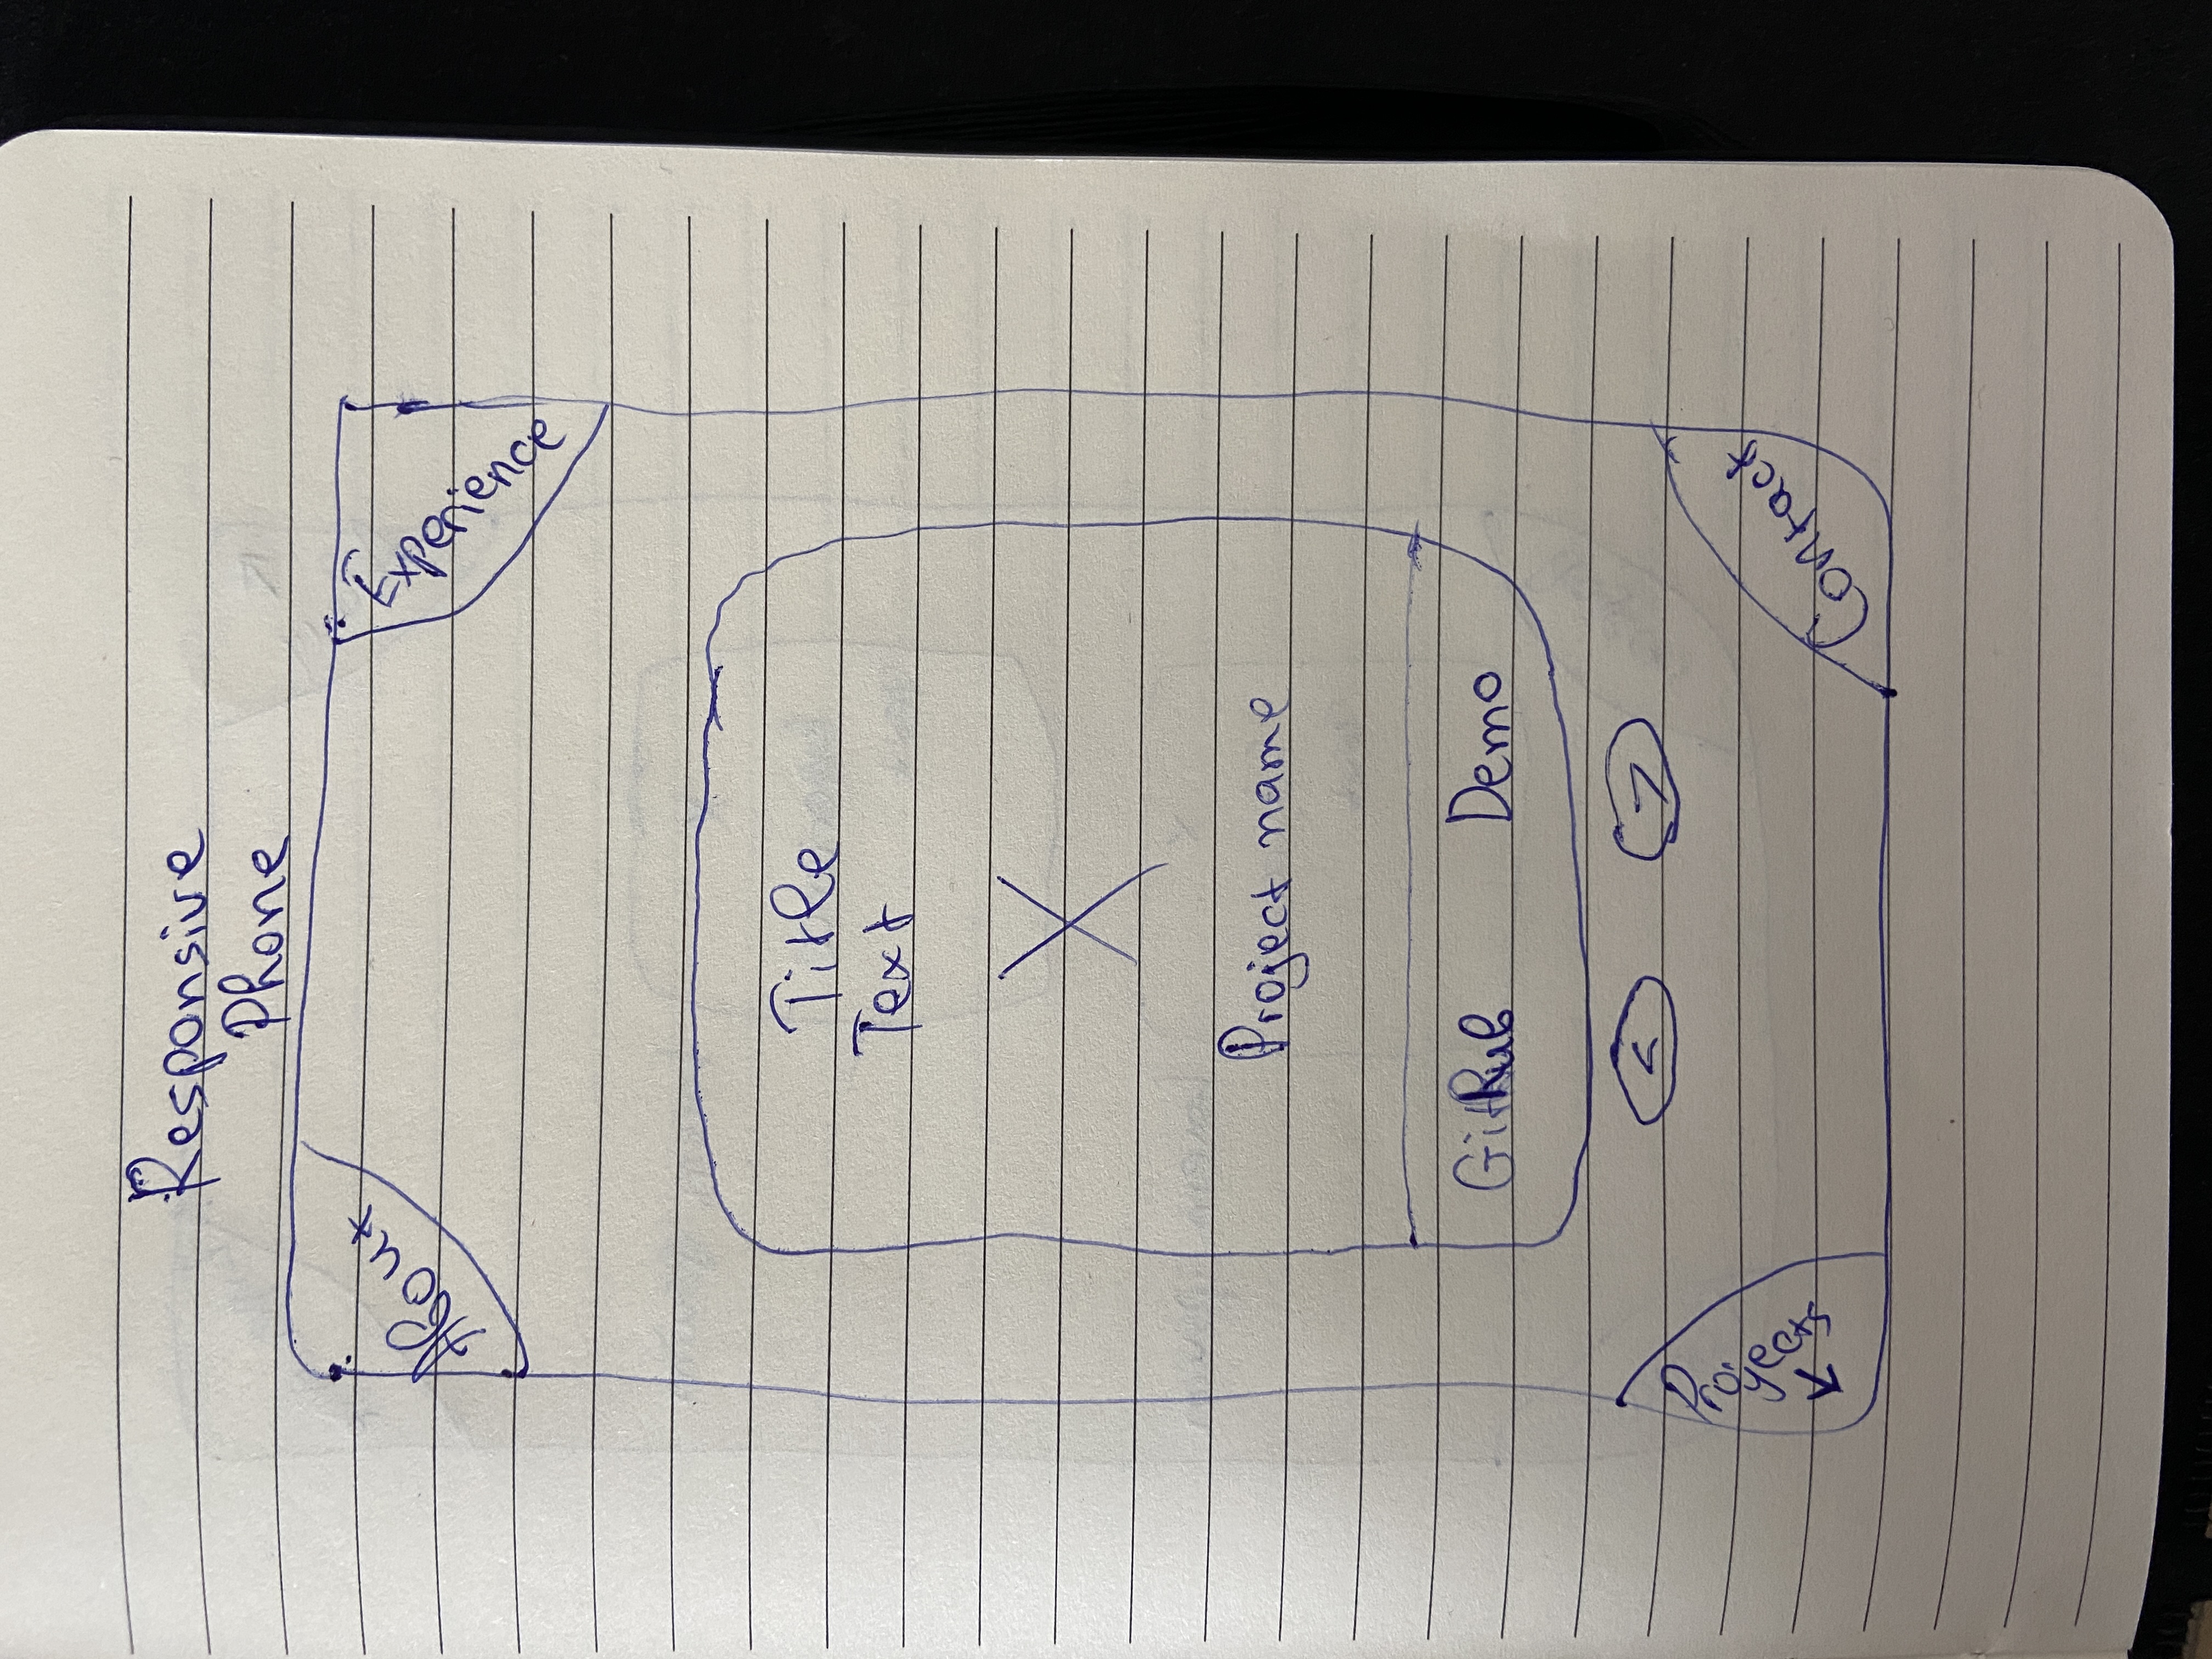 Responsive
Phone
About
Experience
Title
Text
X
Project name
GitHub
Demo
<
>
Projects
Contact